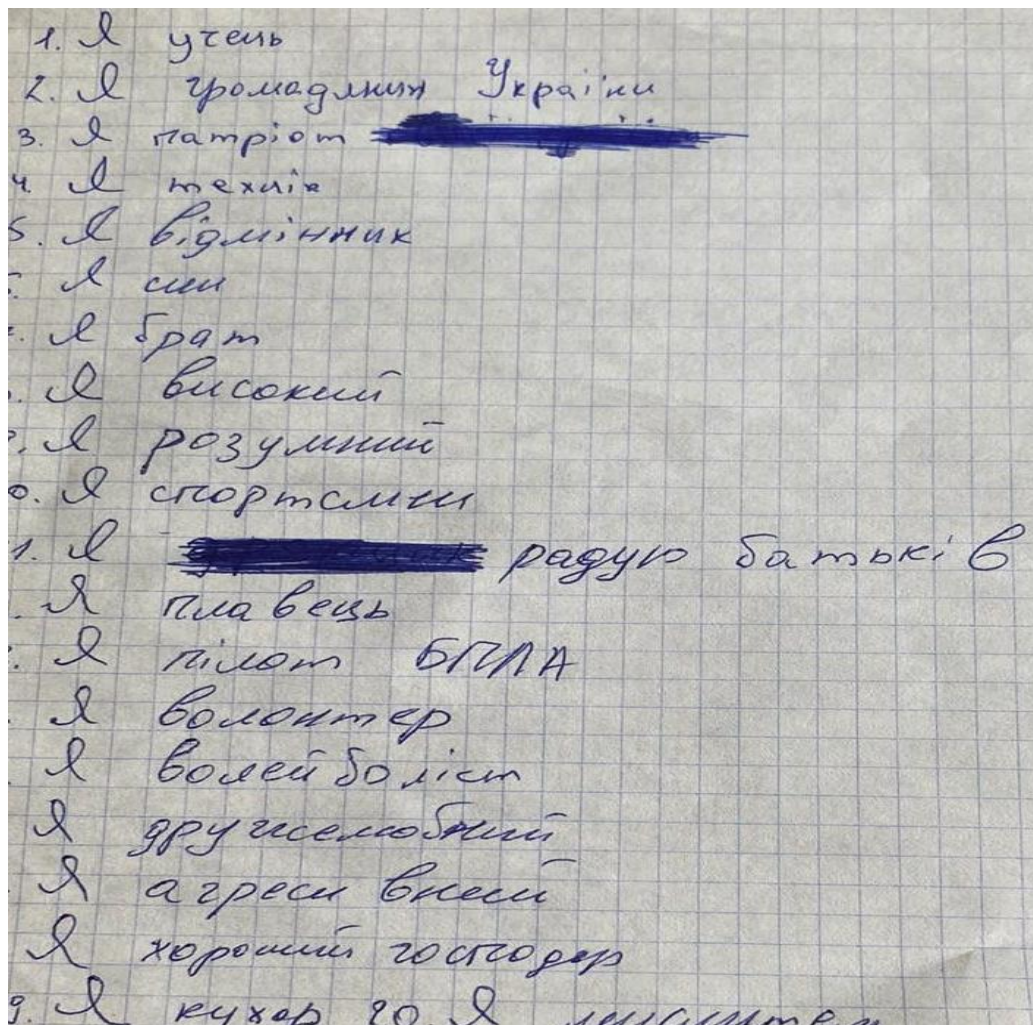 1. Я учень
2. Я громадянин України
3. Я патріот
4 Я технік
5. Я відмінник
Я син
Я брат
Я високий
Я розумний
0. Я спортсмен
1. Я радую батьків
Я плавець
Я пілот БПЛА
Я волонтер
Я волейболіст
Я дружелюбний
Я агресивний
Я хороший господар
9. Я кухар 20. Я